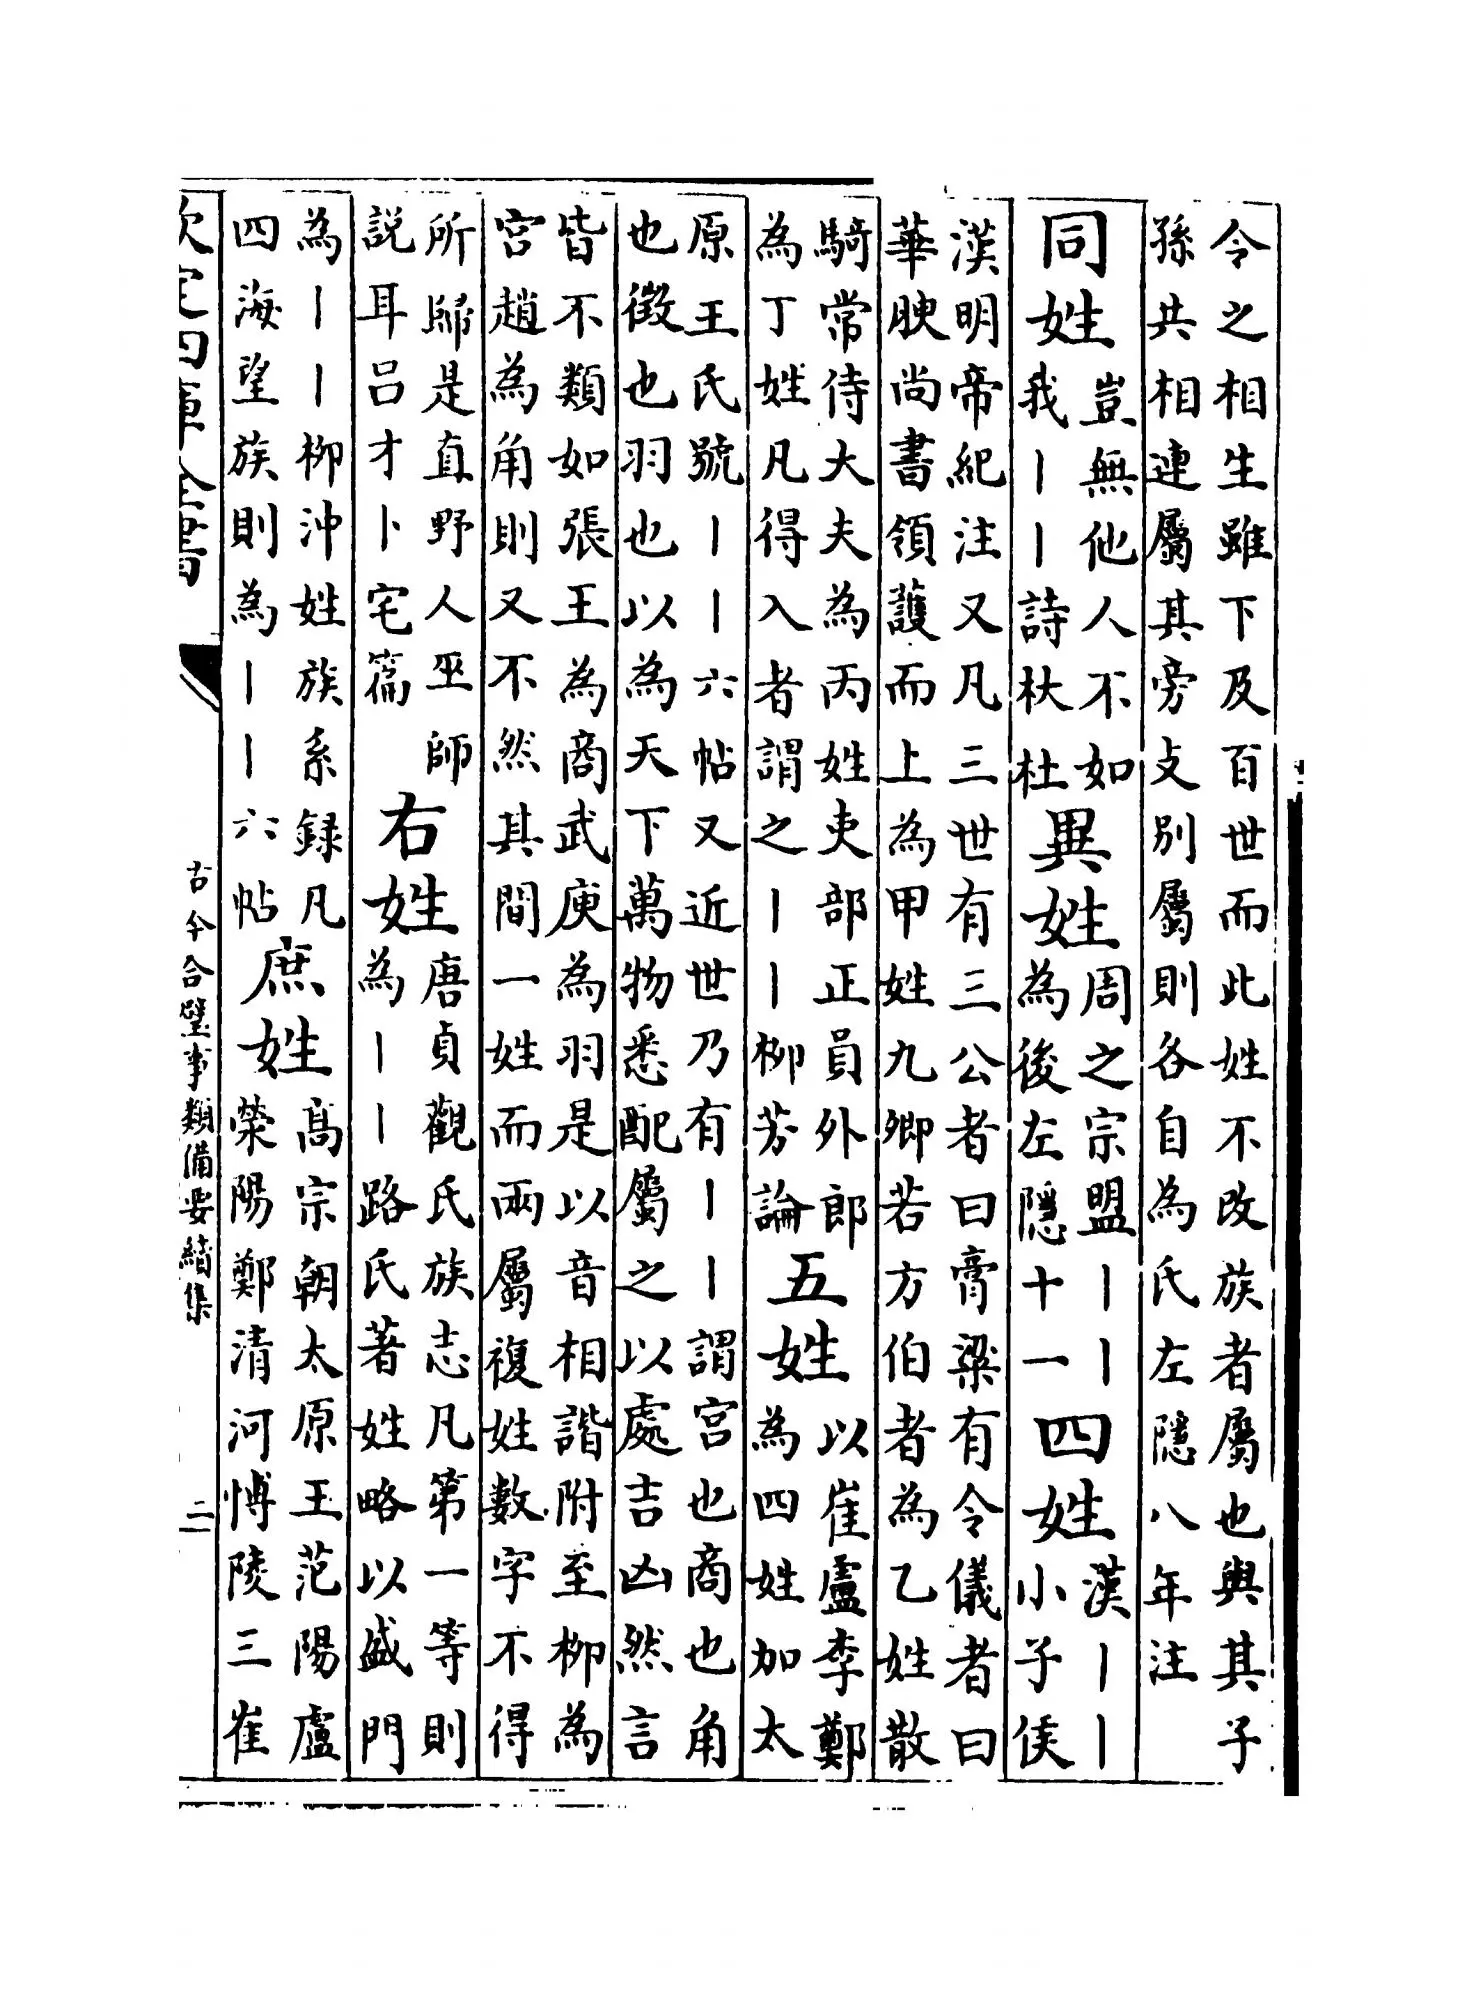 令之相生雖下及百世而此姓不改族者屬也與其子
孫共相連屬其旁支別屬則各自為氏左隱八年注
同姓
豈無他人不如
我丨丨詩杕杜
異姓
周之宗盟丨丨
為後左隱十一
四姓
漢丨丨
小子侯
漢明帝紀注又凡三世有三公者曰膏粱有令儀者曰
華腴尚書領護而上為甲姓九卿若方伯者為乙姓散
騎常侍大夫為丙姓吏部正員外郎
為丁姓凡得入者謂之丨丨柳芳論
五姓
以崔盧李鄭
為四姓加太
原王氏號丨丨六帖又近世乃有丨丨謂宫也商也角
也徵也羽也以為天下萬物悉配屬之以處吉凶然言
皆不類如張王為商武庾為羽是以音相諧附至柳為
宫趙為角則又不然其間一姓而兩屬複姓數字不得
所歸是直野人巫師
説耳吕才卜宅篇
右姓
唐貞觀氏族志凡第一等則
為丨丨路氏著姓略以盛門
為丨丨柳沖姓族系録凡
四海望族則為丨丨六帖
庶姓
髙宗朝太原王范陽盧
滎陽鄭清河博陵三崔
欽定四庫全書
古今合璧事類備要續集
二